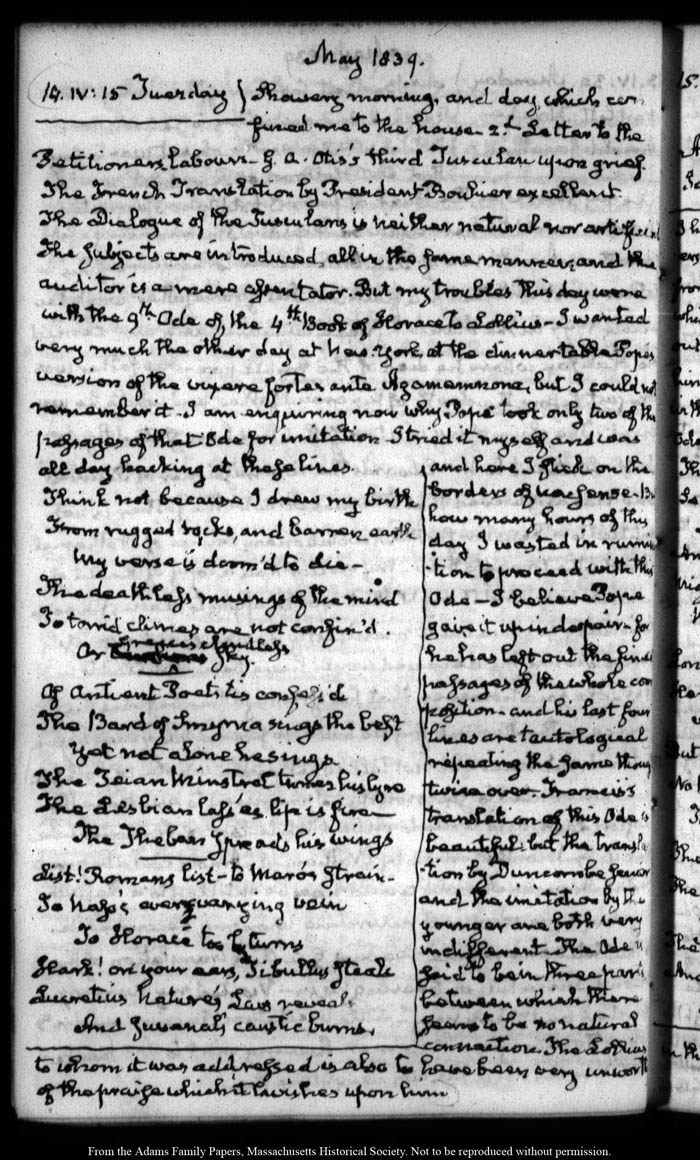 May 1839.
14. IV:15 Tuesday } Showery morning, and day, which con-
fined me to the house. 2d Letter to the
Petitioners. Labour.
third Tusculan upon grief.
The French Translation by President Bouhier excellent.
The Dialogue of the Tusculans is neither natural nor artificial
The subjects are introduced, all in the same manner, and the
auditor is a mere assentator. But my troubles this day were
with the 9th Ode of the 4th Book of Horace to Lollius - I wanted
very much the other day at New-York, at the dinner table Pope's
version of the vixere fortes ante Agamemnona, but I could not
remember it - I am enquiring now why Pope took only two of the
passages of that Ode for imitation - I tried it myself and was
all day hacking at these lines.
Think not because I drew my birth
From rugged rocks, and barren earth
My verse is doom'd to die -
The deathless musings of the mind
To torrid climes are not confin'd.
Or Grecia's cloudless sky.
Of Antient Poets tis confess'd
The Bard of Smyrna sings the best
Yet not alone he sings
The Teian Minstrel tunes his lyre
The Lesbian lass'es lip is fire -
The Theban spreads his wings
List! Romans list - to Maro's strain -
To Naso's every varying vein
To Horace too by turns
Hark! on your ears, Tibullus steals
Lucretius Nature's Laws reveals
And Juvenal's caustic burns.
and here I stick on the
borders of nonsense. But
how many hours of this
day I wasted in rumina
-tion to proceed with this
Ode - I believe Pope
gave it up in despair - for
he has left out the finest
passages of the whole com
position - and his last four
lines are tautological
repeating the same thought
twice over. Francis's
translation of this Ode is
beautiful: but the transla
-tion by Duncombe senior
and the imitation by the
younger are both very
indifferent. The Ode is
said to be in three parts
between which there
seems to be no natural
connection. The Lollius
to whom it was addressed is also to have been very unworthy
of the praise which it lavishes upon him
From the Adams Family Papers, Massachusetts Historical Society. Not to be reproduced without permission.